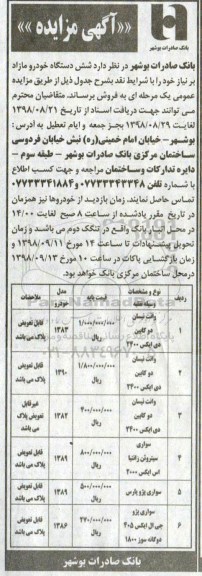 بانک صادرات بوشهر
«آگهی مزایده»
بانک صادرات بوشهر در نظر دارد شش دستگاه خودرو مازاد
بر نیاز خود را با شرایط نقد بشرح جدول ذیل از طریق مزایده
عمومی یک مرحله ای به فروش برساند. متقاضیان محترم
می توانند جهت دریافت اسناد از تاریخ ۱۳۹۸/۰۸/۲۱
لغایت ۱۳۹۸/۰۸/۲۹ بجز جمعه و ایام تعطیل به آدرس:
بوشهر - خیابان امام خمینی(ره) نبش خیابان فردوسی
ساختمان مرکزی بانک صادرات بوشهر - طبقه سوم -
دایره تدارکات وساختمان مراجعه و جهت کسب اطلاع
با شماره تلفن ۰۷۷۳۳۳۴۳۳۴۸ و ۰۷۷۳۳۳۴۱۸۸۴
تماس حاصل نمایند. زمان بازدید از خودروها نیز همزمان
در تاریخ مقرر یادشده از ساعت ۸ صبح لغایت ۱۴/۰۰
در محل انبار بانک واقع در تنگک دوم می باشد و زمان
تحویل پیشنهادات تا ساعت ۱۴ مورخ ۱۳۹۸/۰۹/۱۱ و
زمان بازگشایی پاکات در ساعت ۱۰ مورخ ۱۳۹۸/۰۹/۱۳
درمحل ساختمان مرکزی بانک خواهد بود.
ردیف نوع و مشخصات وسیله نقلیه قیمت پایه مدل خودرو ملاحظات
۱ وانت نیسان دو کابین دی ایکس ۲۴۰۰ ۱/۰۰۰/۰۰۰/۰۰۰ ریال ۱۳۸۳ قابل تعویض پلاک می باشد
۲ وانت نیسان دو کابین دی ایکس ۲۴۰۰ ۱/۸۰۰/۰۰۰/۰۰۰ ریال ۱۳۹۰ قابل تعویض پلاک می باشد
۳ وانت نیسان دو کابین دی ایکس ۲۴۰۰ ۴۰۰/۰۰۰/۰۰۰ ریال ۱۳۸۲ غیرقابل تعویض پلاک می باشد
۴ سواری سیتروئن زانتیا اس ایکس ۲۰۰۰ ۸۰۰/۰۰۰/۰۰۰ ریال ۱۳۸۹ قابل تعویض پلاک می باشد
۵ سواری پژو پارس ۵۰۰/۰۰۰/۰۰۰ ریال ۱۳۸۹ قابل تعویض پلاک می باشد
۶ سواری پژو جی ال ایکس ۴۰۵ دوگانه سوز ۱۸۰۰ ۲۴۰/۰۰۰/۰۰۰ ریال ۱۳۸۶ قابل تعویض پلاک می باشد
بانک صادرات بوشهر